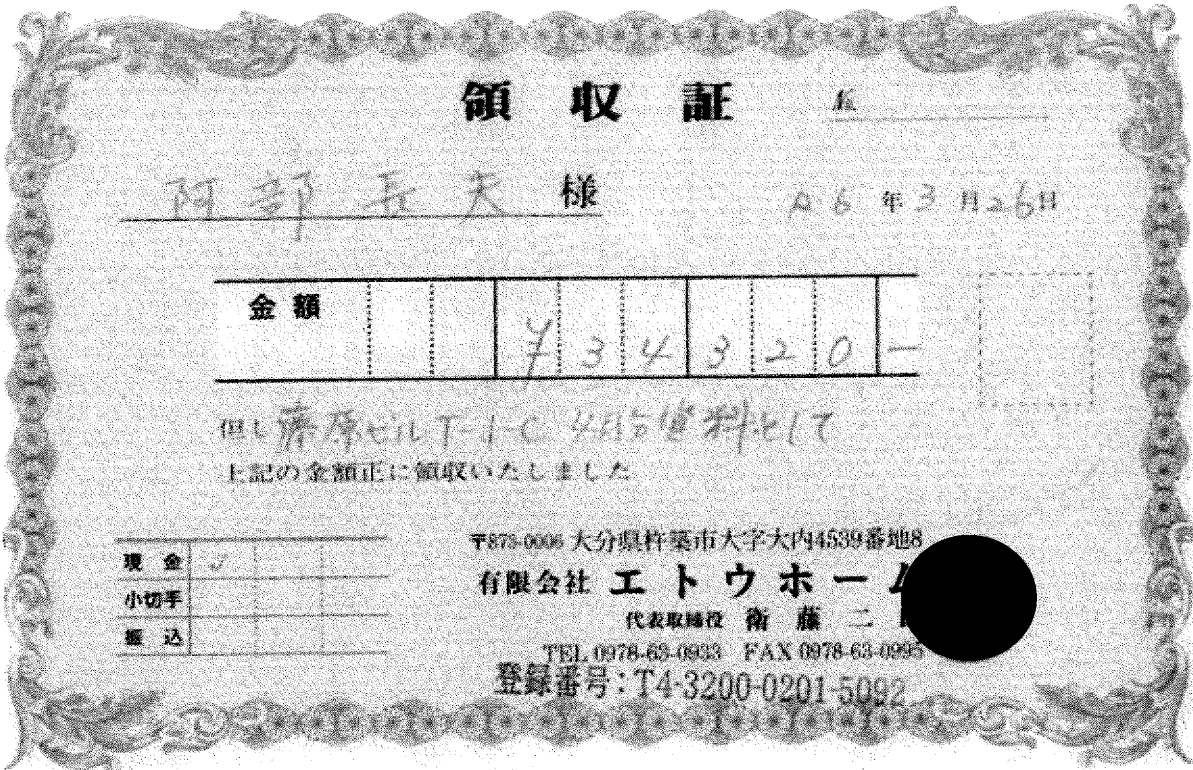 領収証 №
阿部長夫 様
R6年3月26日
金額 ¥34320-
但し 藤原ビル T-1-C 4月分賃料として
上記の金額正に領収いたしました
現金
小切手
振込
〒873-0006 大分県杵築市大字大内4539番地8
有限会社 エトウホーム
代表取締役 衛藤二
TEL 0978-63-0933 FAX 0978-63-0995
登録番号:T4-3200-0201-5092